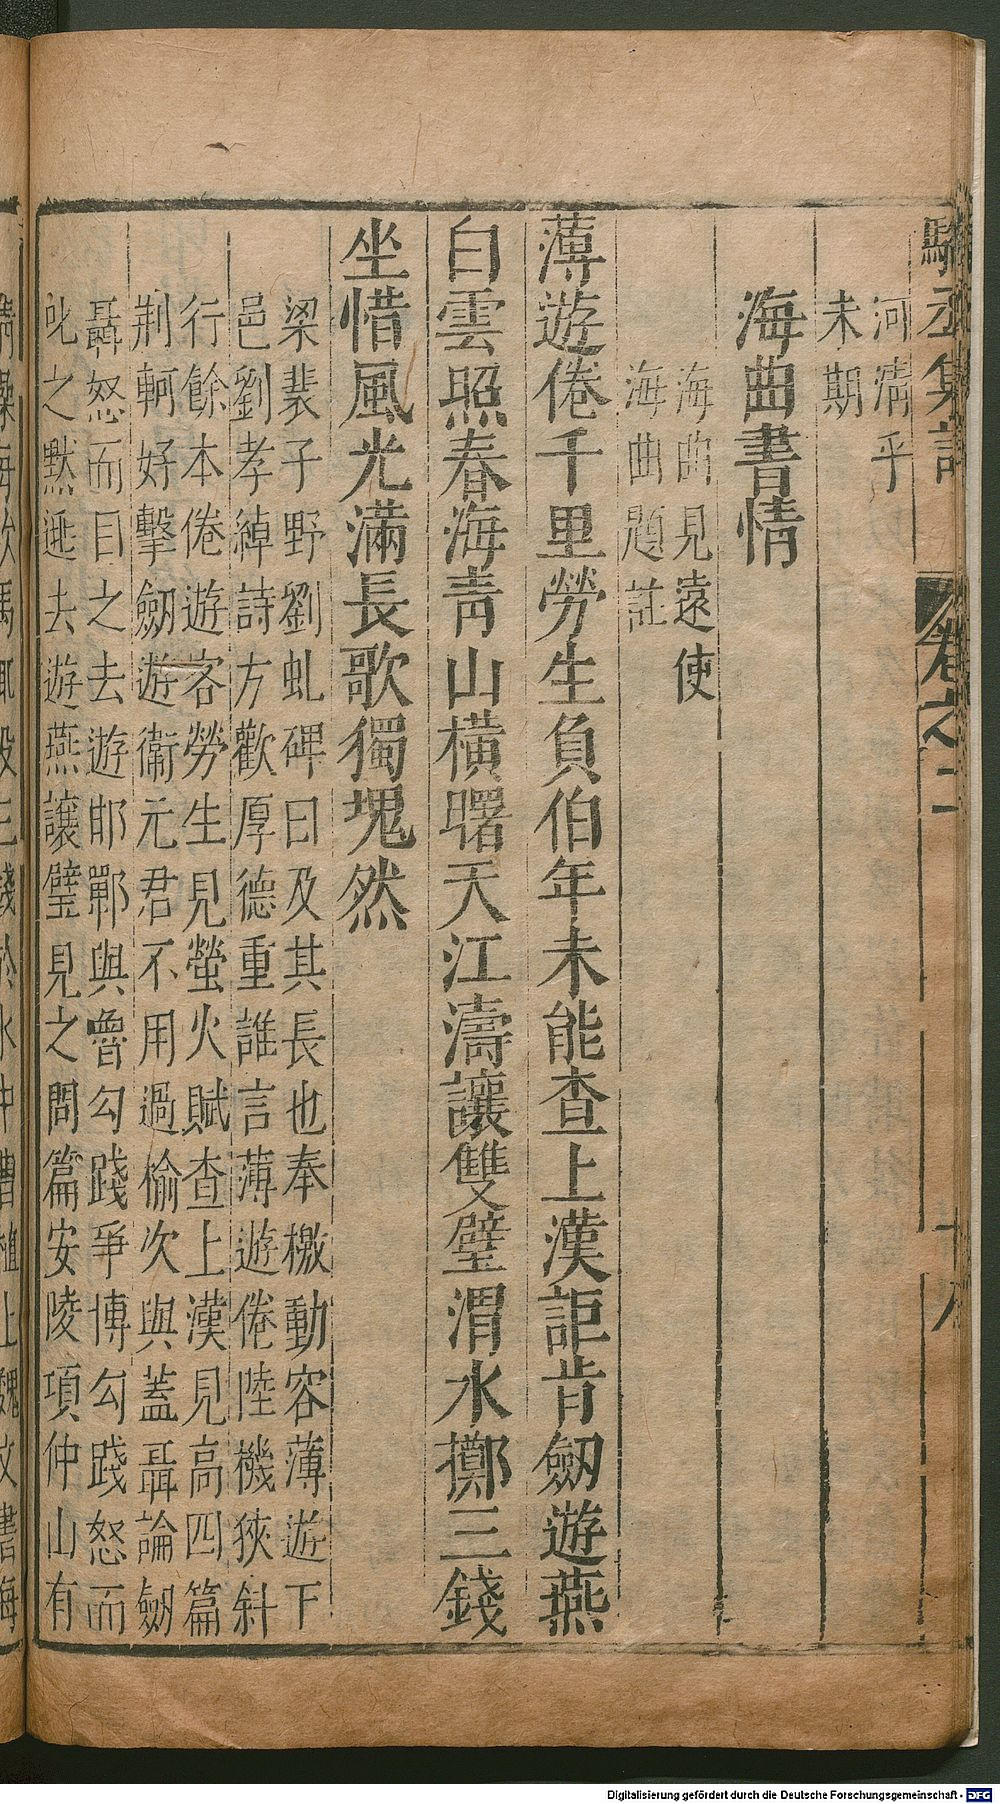 駱丞集註
卷之二
十八
河清乎
未期
海曲書情
海曲見遠使
海曲題註
薄遊倦千里勞生負伯年未能查上漢詎肯劒遊燕
白雲照春海青山橫曙天江濤讓雙璧渭水擲三錢
坐惜風光滿長歌獨塊然
梁裴子野劉虬碑曰及其長也奉檄動容薄遊下
邑劉孝綽詩方歡厚德重誰言薄遊倦陸機狹斜
行餘本倦遊客勞生見螢火賦查上漢見高四篇
荆軻好擊劒遊衞元君不用過榆次與蓋聶論劒
聶怒而目之去遊邯鄲與魯勾踐爭博勾踐怒而
叱之默逃去遊燕讓璧見之問篇安陵項仲山有
Digitalisierung gefördert durch die Deutsche Forschungsgemeinschaft - DFG